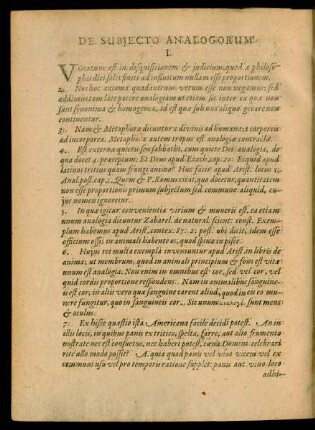 DE SUBJECTO ANALOGORUM.
I.
VOcatum est in disquisitionem & judicium, quod a philoso-
phis dici solet finiti ad infinitum nullam esse proportionem.
2. Nos hoc axioma quadantenus verum esse non negamus; sed
addimus tam late patere analogiam ut etiam sit inter ea quæ non
sunt synonima & homogenea, id est quæ sub una aliquo genere non
continentur.
3. Nam & Metaphoræ dicuntur a divinis ad humana: a corporeis
ad incorporea. Metaphora autem tropus est analogia contracta.
4. Est externa quietis seu sabbathi, cum quiete Dei analogia, de
qua docet 4. præceptum. Et Idem apud Ezech. cap. 20.
Anal. post. cap. Quem & P. Ramum citat, quo docetur, quantitatem
non esse proportionis primum subjectum sed commune aliquid, cu-
jus nomen ignoretur.
5. Inquatuor convenientia virium & muneris est, ea etiam
unum analogia dicuntur Zabarel. de natural. scient. const. Exem-
plum habemus apud Arist. context. 57. 2. post. ubi dicit, idem esse
officium ossis in animali habente os, quod spinæ in pisce.
6. Hujus rei multa exempla inveniuntur apud Arist. in libris de
anima: ut membrum, quod in animali principium & fons est vitæ
unum est analogia: Non enim in omnibus est cor, sed vel cor, vel
quid cordi proportione respondens. Nam in animalibus sanguine-
is est cor, in aliis vero quæ sanguine carent aliud, quod in eo mu-
nere fungitur, quo in sanguineis cor. Sic unum sunt mens
& oculus.
7. Ex hisce quæstio ista Americana facile decidi potest. An in
illis locis, in quibus panis ex tritico, spelta, farre, aut alio frumento
nostrate nec est consuetus, nec haberi potest, cœna Domini celebrari
rite ullo modo possit? A. qua quod panis vel vini vicem vel ex
communi usu vel pro temporis ratione supplet: panis aut vini loco
adhi-